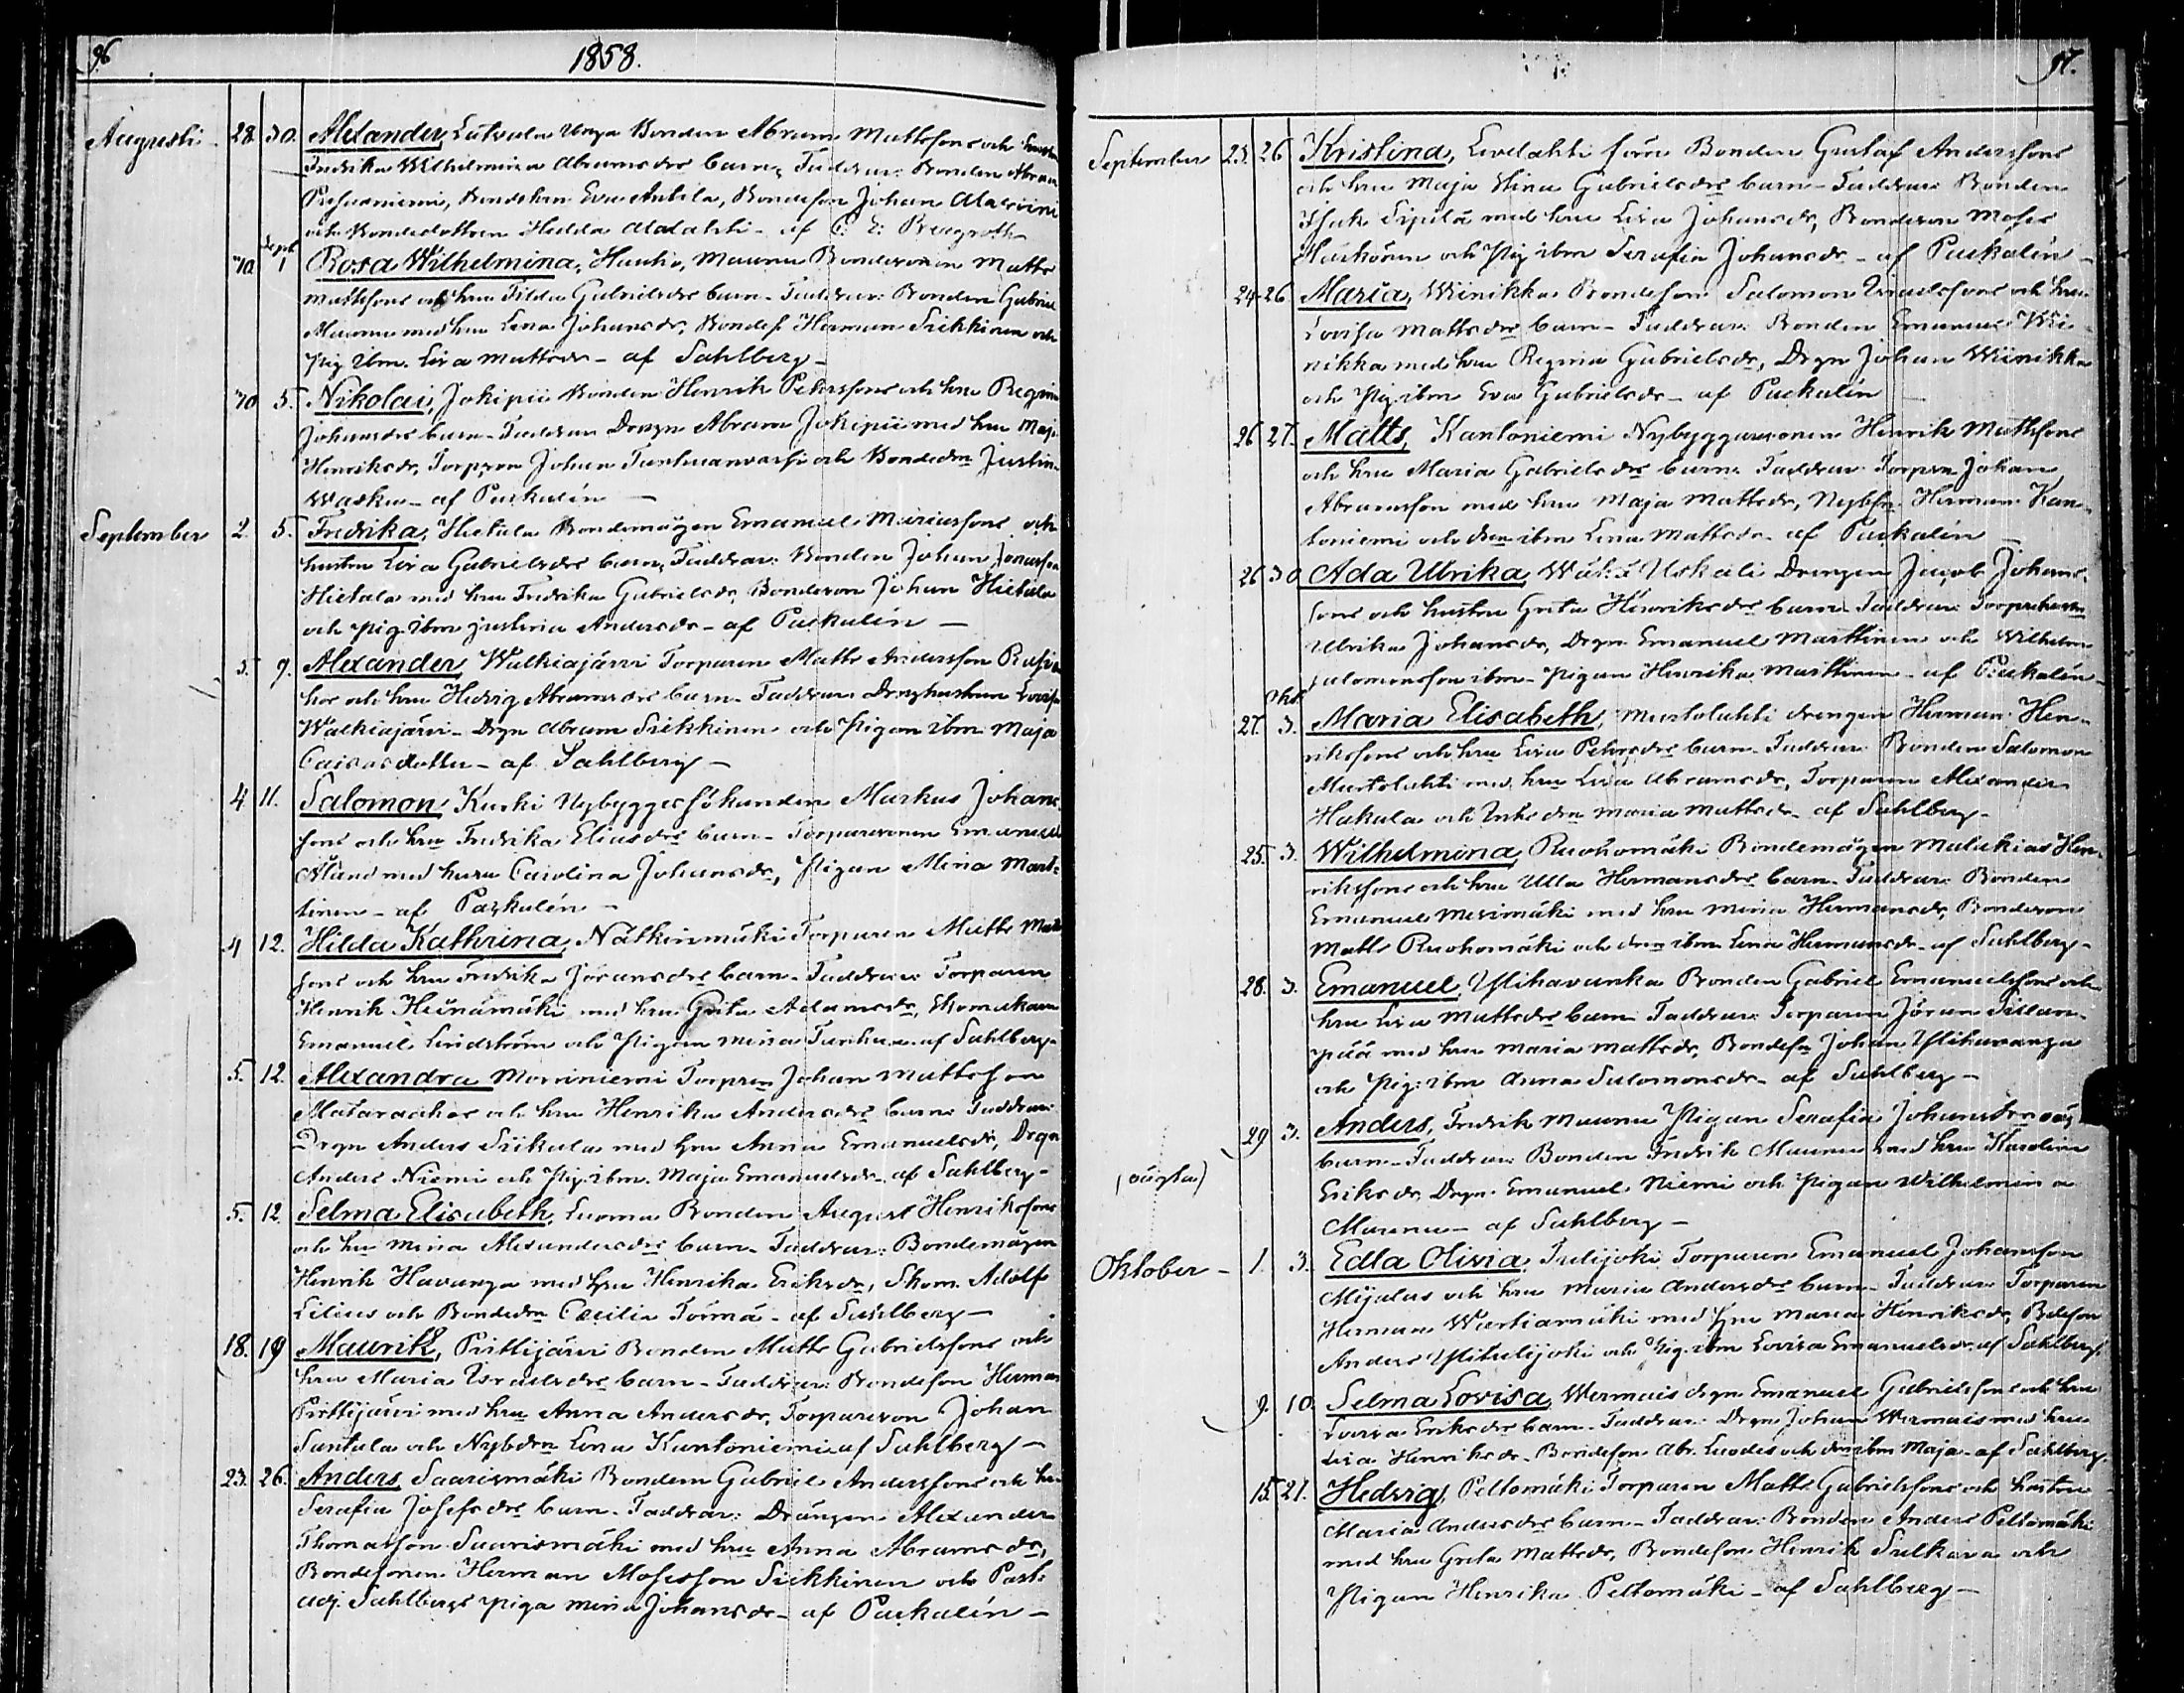 96
1858.
Augusti 28. 30. Alexander, Latvala Unga Bonden Abram Mattssons och hustru
Fredrika Wilhelmina Abramsdrs barn, Faddrar: Bonden Abram
Bondehn Eva Antila, Bondeson Johan Alaviini
och Bondedottren Hedda Alalahti - af C. E. Bergroth
30 Sept 1 Rosa Wilhelmina, Hauho, Maunu Bondesonen Matts
Mattssons och hru Tilda Gabrielsdrs barn - Faddrar: Bonden Gabriel
Maunu med hru Lena Johansdr, Bondes. Herman Siikkinen och
Pig. ibm. Lisa Mattsdr - af Sahlberg -
30 5. Nikolai, Jokipii Bonden Henrik Petterssons och hru Regina
Johansdrs barn - Faddrar Drngn Abram Jokipii med hru Maja
Henriksdr, Torpson Johan och Bondedrn Justina
Waska - af Paskalén -
September 2. 5. Fredrika, Hietala Bondemågen Emanuel Mariassons och
hustru Lisa Gabrielsdrs barn, Faddrar: Bonden Johan Jonasson
Hietala med hru Fredrika Gabrielsdr, Bondeson Johan Hietala
och pig. ibm Justina Andersdr - af Paskalén -
3. 9. Alexander, Walkiajärvi Torparen Matts Andersson
och hru Hedvig Abramsdrs barn - Faddrar Drnghustrun Lovisa
Walkiajärvi - Drgn Abram Siikkinen och Pigan ibm Maja
Caisasdotter - af Sahlberg -
4 11. Salomon, Kuski Nybyggessökanden Markus Johans-
sons och hru Fredrika Eliasdrs barn - Torparesonen Emanuel
Åland med hustru Carolina Johansdr, Pigan Mina Mart-
tinen - af Paskalén -
4 12. Hilda Kathrina, Nätkinmäki Torparen Matts Matts
sons och hru Fredrika Jöransdrs barn - Faddrar: Torparen
Henrik Heinämäki med hru Greta Adamsdr, Skomakaren
Emanuel Lindström och Pigan Mina af Sahlberg -
5. 12. Alexandra Morriniemi Torpren Johan Mattsson
och hru Henrika Andersdrs barn Faddrar:
Drgn Anders Siikala med hru Anna Emanuelsdr, Drgn
Anders Niemi och Pig. ibm. Maja Emanuelsdr - af Sahlberg -
5. 12 Selma Elisabeth, Luoma Bonden August Henrikssons
och hru Mina Alexandersdrs barn - Faddrar: Bondemågen
Henrik Havanga med hru Henrika Eriksdr, Skom. Adolf
Lilius och Bondedrn Cecilia Törmä - af Sahlberg -
18. 19 Maurits, Pirttijärvi Bonden Matts Gabrielssons och
hru Maria Israelsdrs barn - Faddrar: Bondeson Herman
Pirttijärvi med hru Anna Andersdr, Torpareson Johan
Santala och Nybdrn Lena Kantoniemi af Sahlberg -
23. 26. Anders, Saarismäki Bonden Gabriel Anderssons och hru
Serafia Josefsdrs barn - Faddrar: Drängen Alexander
Thomasson Saarismäki med hru Anna Abramsdr,
Bondesonen Herman Mosesson Siikkinen och Past.
adj. Sahlbergs piga Mina Johansdr - af Paskalén -
97.
September 23. 26 Kristina, Livelahti Bonden Gustaf Anderssons
och hru Maja Stina Gabrielsdrs barn - Faddrar Bonden
Isak Sipilä med hru Lisa Johansdr, Bondeson Moses
och Pig ibm Serafia Johansdr - af Paskalén -
24 26 Maria, Wiinikka Bondeson Salomon Israelssons och hru
Lovisa Mattsdrs barn - Faddrar: Bonden Emanuel Wii-
nikka med hru Regina Gabrielsdr, Drgn Johan Wiinikka
och Pig. ibm Eva Gabrielsdr - af Paskalén
26 27. Matts, Kantoniemi Nybyggaresonen Henrik Mattssons
och hru Maria Gabrielsdrs barn Faddrar Torprn Johan
Abramsson med hru Maja Mattsdr, Nybsn Herman Kan-
toniemi och drn ibm Lena Mattsdr - af Paskalén -
26 30 Ada Ulrika, Wäkä Uskali Drengen Jacob Johans-
sons och hustru Greta Henriksdrs barn Faddrar: Torprhustru
Ulrika Johansdr, Drgn Emanuel Marttinen och Wilhelm
Salomonsson ibm - Pigan Henrika Marttinen - af Paskalén -
Okt.
27. 3. Maria Elisabeth, Mustolahti drengen Herman Hen-
rikssons och hru Lisa Pehrsdrs barn - Faddrar: Bonden Salomon
Mustolahti med hru Lisa Abramsdr, Torparen Alexander
Hakala och Enke drn Maria Mattsdr - af Sahlberg -
25. 3. Wilhelmina, Ruohomäki Bondemågen Malakias Hen-
rikssons och hru Ulla Hermansdrs barn - Faddrar: Bonden
Emanuel Merimäki med hru Maria Hermansdr, Bondeson
Matts Ruohomäki och drn ibm Lena Hermansdr - af Sahlberg -
28. 3. Emanuel, Ylihavanka Bonden Gabriel Emanuelssons och
hru Lisa Mattsdrs barn Faddrar: Torparen Jöran Sillan-
pää med hru Maria Mattsdr, Bondesn Johan Ylihavanga
och Pig. ibm Anna Salomonsdr - af Sahlberg -
(oägta) 29 3. Anders, Fredrik Maunu Pigan Serafia Johansdrs oäg.
barn - Faddrar: Bonden Fredrik Maunu med hru Karolina
Eriksdr, Drgn. Emanuel Niemi och Pigan Wilhelmina
Maunu - af Sahlberg -
Oktober - 1. 3. Edla Olivia, Torparen Emanuel Johansson
och hru Maria Andersdrs barn - Faddrar Torparen
Herman Wartiamäki med hru Maria Henriksdr, Bdeson
Anders och Pig. ibm Lovisa Emanuelsdr af Sahlberg
9. 10. Selma Lovisa, Wermais drgn Emanuel Gabrielssons och hru
Lovisa Eriksdrs barn - Faddrar: Drgn Johan Wermais med hru
Lisa Henriksdr - Bondeson Abr. Luodes och drn ibm Maja - af Sahlberg
15. 21. Hedvig, Peltomäki Torparen Matts Gabrielssons och hustru
Maria Andersdrs barn - Faddrar: Bonden Anders Peltomäki
med hru Greta Mattsdr, Bondeson Henrik Sulkava och
Pigan Henrika Peltomäki - af Sahlberg -